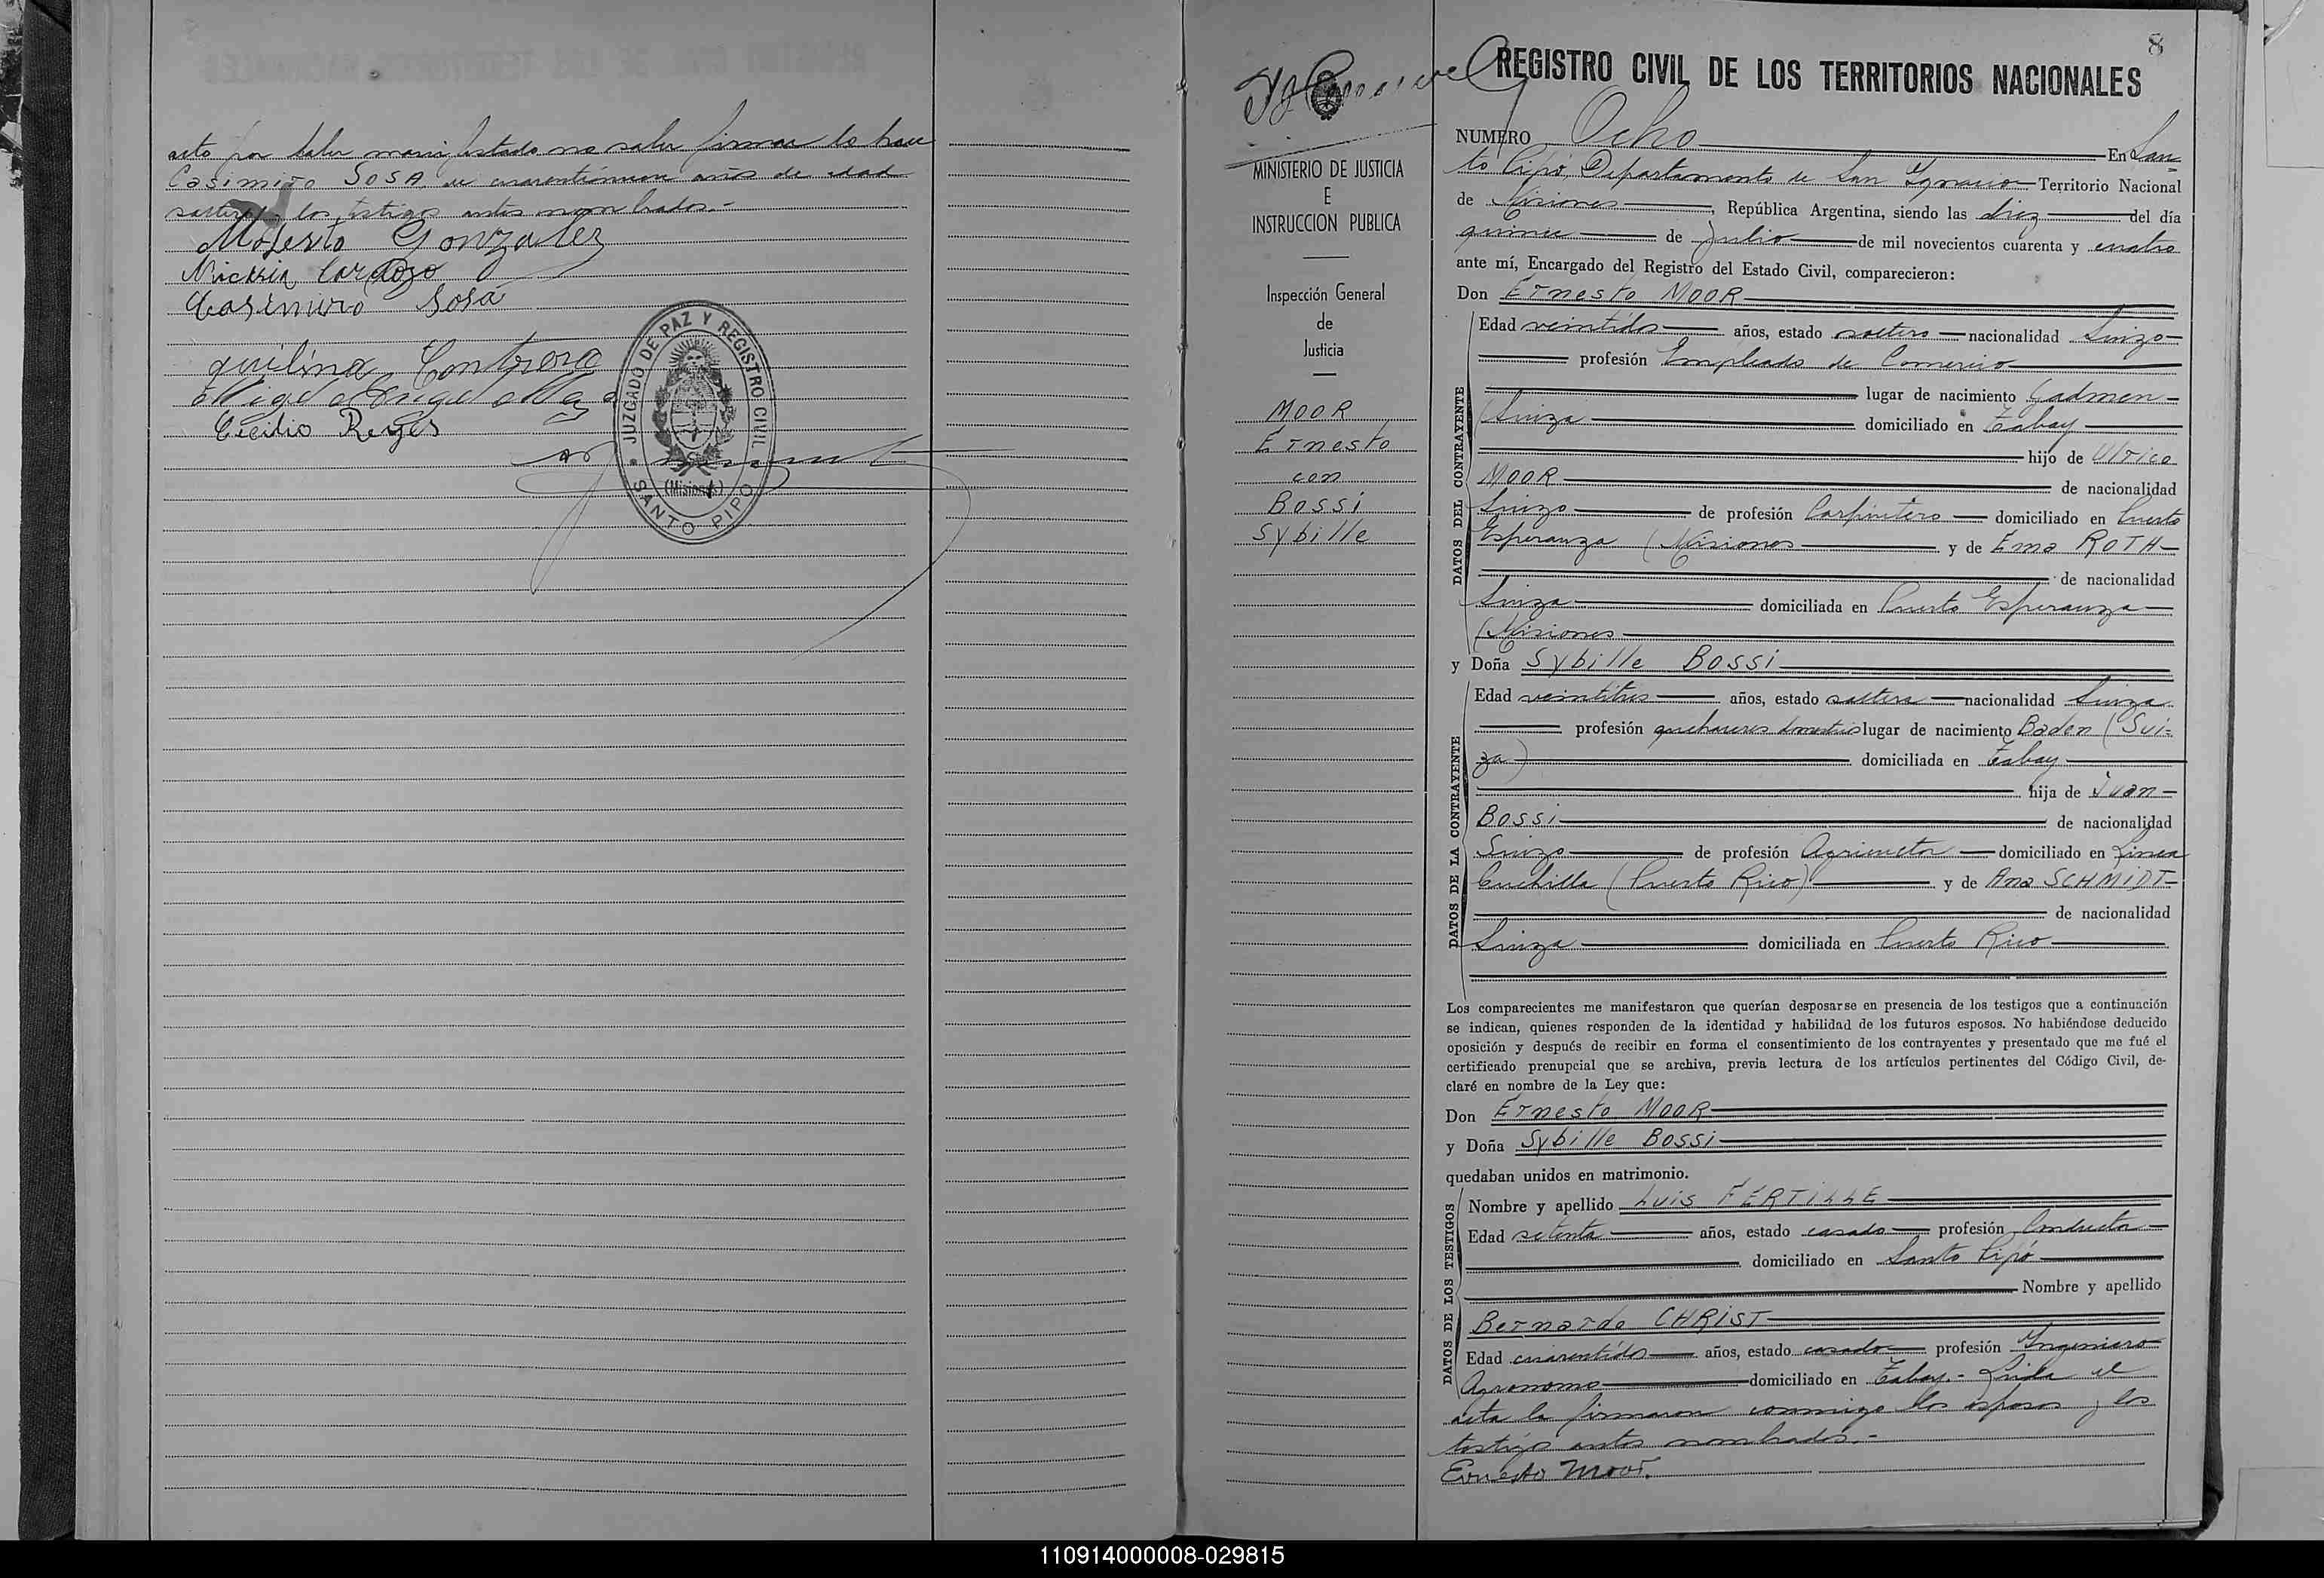 acto por haber manifestado no saber firmar lo hace
Casimiro SOSA, de cuarentinueve años de edad
soltero y los testigos antes nombrados.-
Modesto Gonzalez
Nicacia Cardozo
Casimiro Sosa
JUZGADO DE PAZ Y REGISTRO CIVIL
(Misiones)
SANTO PIPO
Cecilio Reyes
8
REGISTRO CIVIL DE LOS TERRITORIOS NACIONALES
MINISTERIO DE JUSTICIA
E
INSTRUCCION PUBLICA
Inspección General
de
Justicia
MOOR
Ernesto
con
Bossi
Sybille
NUMERO Ocho En San-
to Pipó, Departamento de San Ygnacio Territorio Nacional
de Misiones, República Argentina, siendo las diez del día
quince de Julio de mil novecientos cuarenta y cuatro
ante mí, Encargado del Registro del Estado Civil, comparecieron:
Don Ernesto MOOR
DATOS DEL CONTRAYENTE
Edad veintidos años, estado soltero nacionalidad Suizo
profesión Empleado de Comercio
lugar de nacimiento Gadmen-
(Suiza domiciliado en Tabay
hijo de Ulrico
MOOR de nacionalidad
Suizo de profesión Carpintero domiciliado en Puerto
Esperanza (Misiones y de Ema ROTH
de nacionalidad
Suiza domiciliada en Puerto Esperanza
(Misiones
y Doña Sybille Bossi
DATOS DE LA CONTRAYENTE
Edad veintitres años, estado soltera nacionalidad Suiza
profesión quehaceres domestios lugar de nacimiento Baden (Sui-
za) domiciliada en Tabay
hija de Juan
BOSSI de nacionalidad
Suizo de profesión Agricultor domiciliado en Linea
Cuchilla (Puerto Rico) y de Ana SCHMIDT
de nacionalidad
Suiza domiciliada en Puerto Rico
Los comparecientes me manifestaron que querían desposarse en presencia de los testigos que a continuación
se indican, quienes responden de la identidad y habilidad de los futuros esposos. No habiéndose deducido
oposición y después de recibir en forma el consentimiento de los contrayentes y presentado que me fué el
certificado prenupcial que se archiva, previa lectura de los artículos pertinentes del Código Civil, de-
claré en nombre de la Ley que:
Don Ernesto MOOR
y Doña Sybille Bossi
quedaban unidos en matrimonio.
DATOS DE LOS TESTIGOS
Nombre y apellido Luis FERTILLE
Edad setenta años, estado casado profesión Conductor
domiciliado en Santo Pipó
Nombre y apellido
Bernardo CHRIST
Edad cuarentidos años, estado casado profesión Yngeniero
Agronomo domiciliado en Tabay.- Leida el
acta la firmaron conmigo los esposos y los
testigos antes nombrados.-
Ernesto Moor.
110914000008-029815